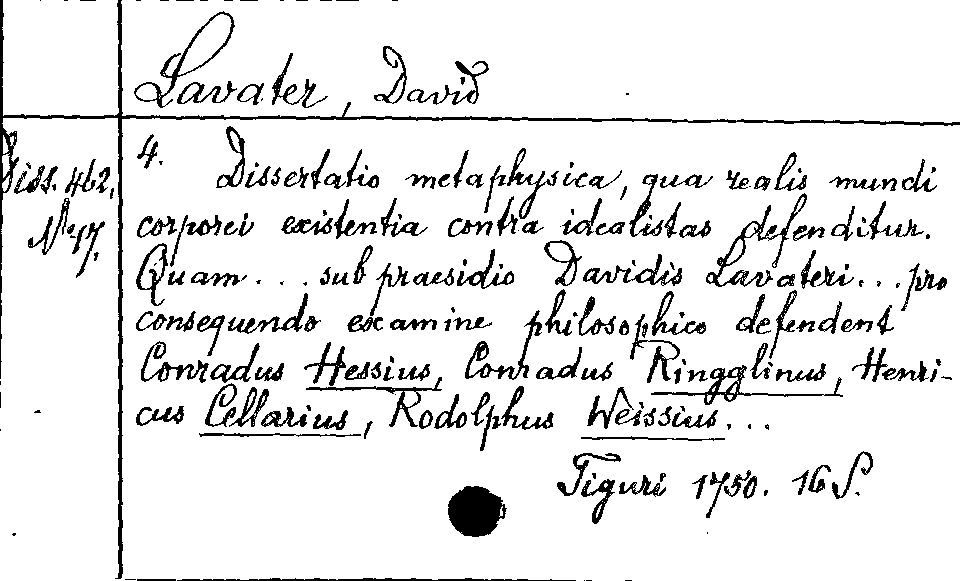 Lavater, David
Diss. 462.
No 17.
4. Dissertatio metaphysica, qua realis mundi
corporei existentia contra idealistas defenditur.
Quam... sub praesidio Davidis Lavateri... pro
consequendo examine philosophico defendent
Conradus Hessius, Conradus Ringglinus, Henri-
cus Cellarius, Rodolphus Weissius...
Tiguri 1750. 16 S.